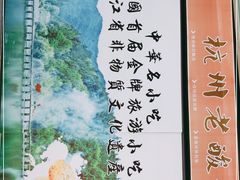 中華名小吃
國首届金牌旅游小吃
江省非物質文化遺產
杭州老酸